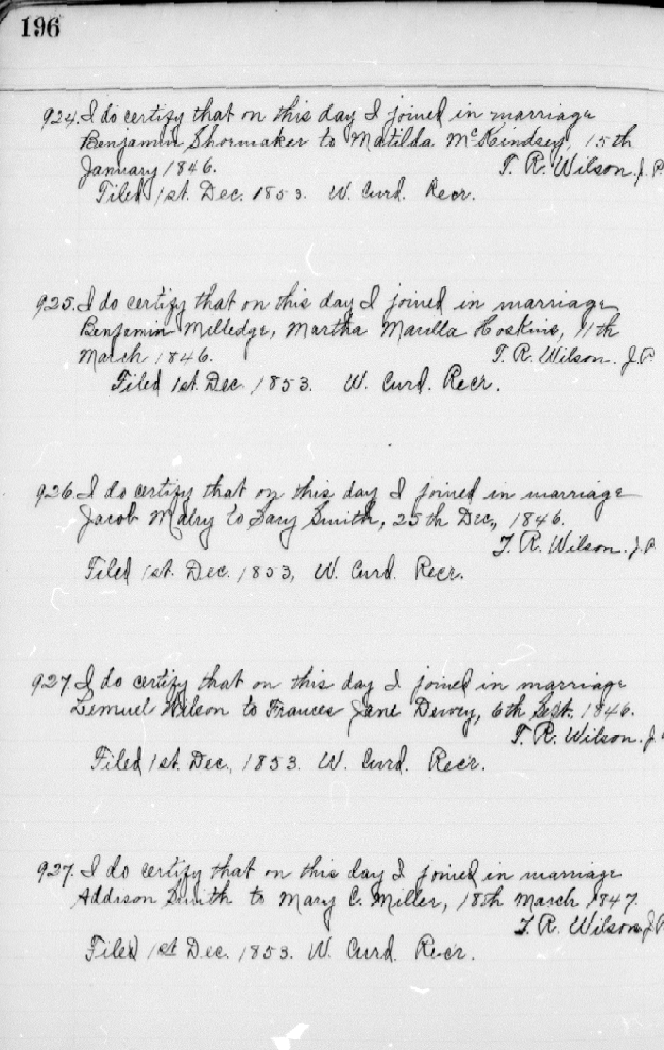 196
924. I do certify that on this day I joined in marriage
Benjamin Shormaker to Matilda McKindsey, 15th
January 1846. T. R. Wilson. J. P.
Filed 1st. Dec. 1853. W. Curd. Recr.
925. I do certify that on this day I joined in marriage
Benjamin Milledge, Martha Marilla Hoskins, 11th
March 1846. T. R. Wilson. J.P.
Filed 1st. Dec. 1853. W. Curd. Recr.
926. I do certify that on this day I joined in marriage
Jacob to Smith, 25th Dec., 1846.
T. R. Wilson. J.P.
Filed 1st. Dec. 1853, W. Curd. Recr.
927. I do certify that on this day I joined in marriage
Lemuel Wilson to Frances Jane Dewey, 6th Sept. 1846.
T. R. Wilson. J.
Filed 1st. Dec., 1853. W. Curd. Recr.
927. I do certify that on this day I joined in marriage
Addison Smith to Mary C. Miller, 18th March 1847.
T. R. Wilson, J.P
Filed 1st Dec. 1853. W. Curd. Recr.